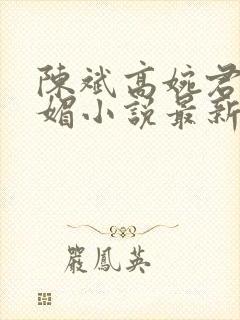 陳斌高婉君
媚小說最新
嚴鳳英